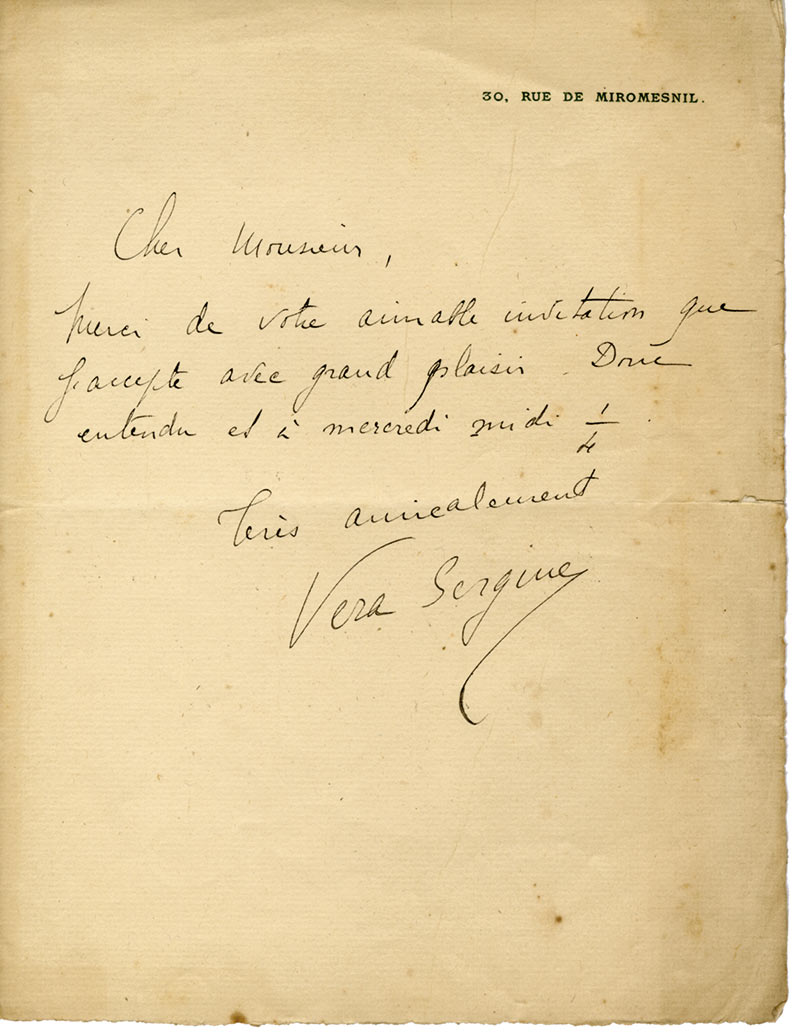 30, RUE DE MIROMESNIL.
Cher Monsieur,
Merci de votre aimable invitation que
j'accepte avec grand plaisir. Donc
entendu et à mercredi midi 1/4.
Très amicalement
Vera Sergine